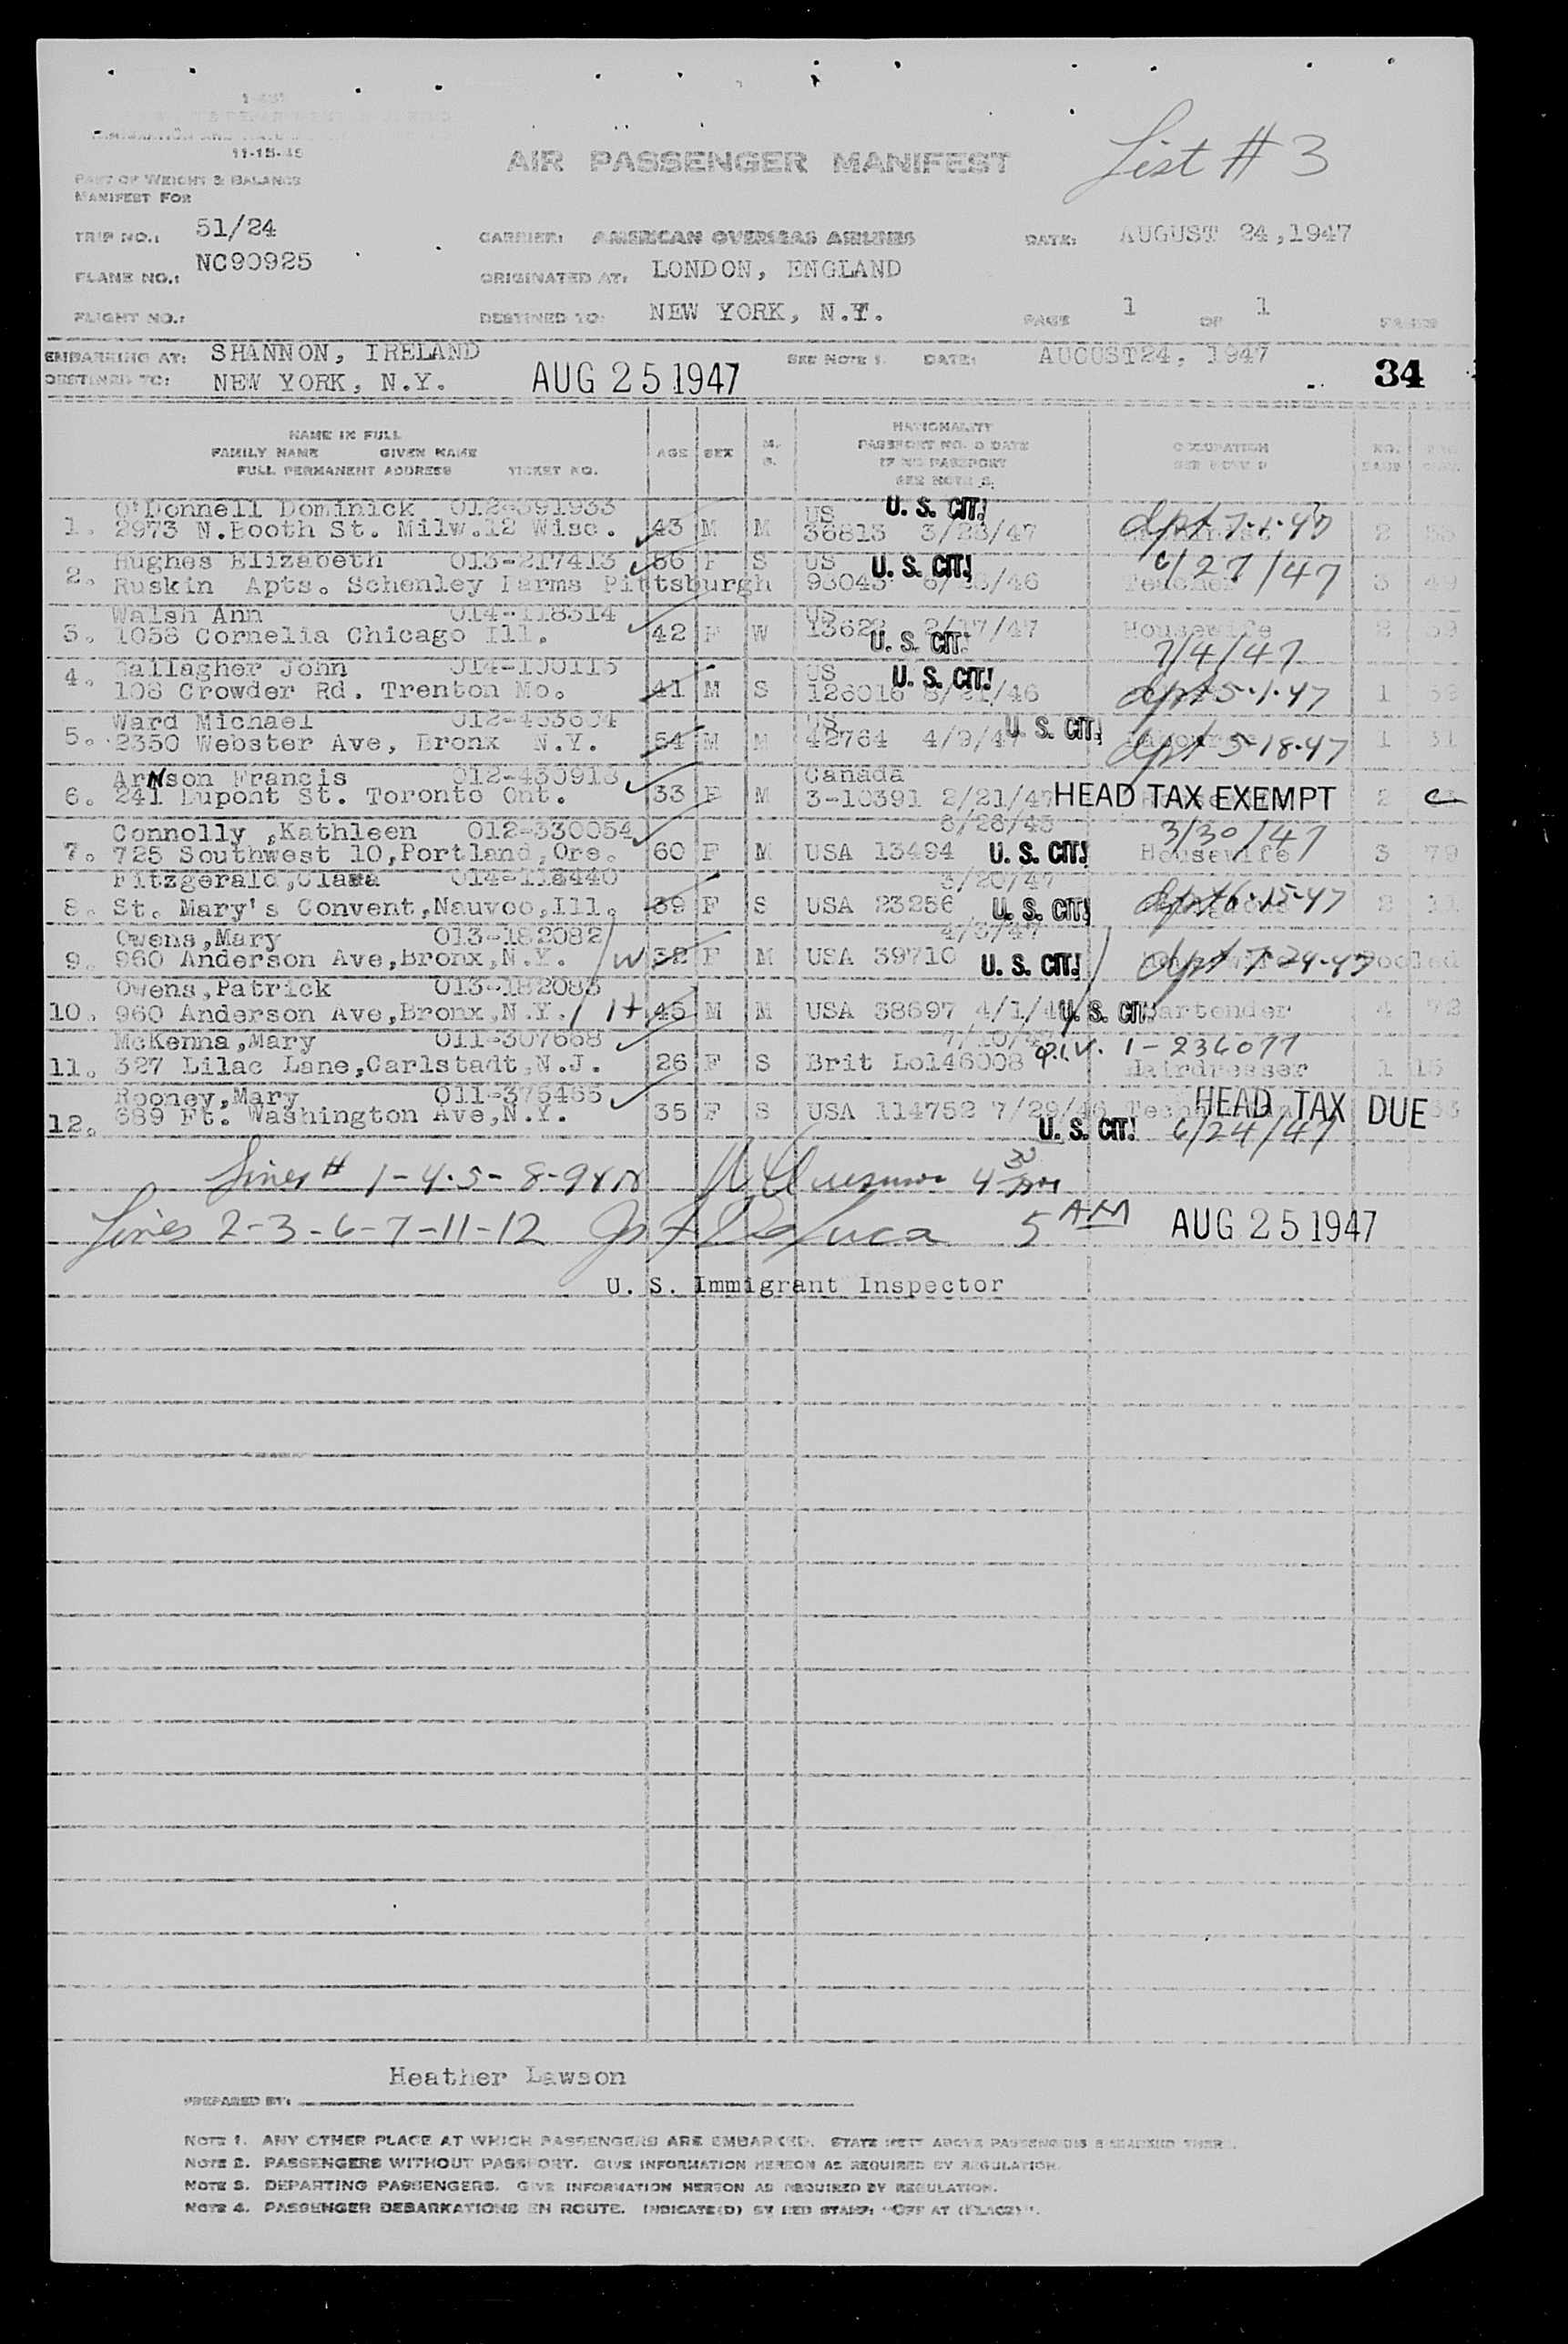 11-15-45
PART OF WEIGHT & BALANCE
MANIFEST FOR
AIR PASSENGER MANIFEST
List # 3
TRIP NO.: 51/24
CARRIER: AMERICAN OVERSEAS AIRLINES
DATE: AUGUST 24,1947
PLANE NO.: NC90925
ORIGINATED AT: LONDON, ENGLAND
FLIGHT NO.:
DESTINED TO: NEW YORK, N.Y.
PAGE 1 OF 1 PAGES
EMBARKING AT: SHANNON, IRELAND
SEE NOTE 1. DATE: AUGUST24, 1947
DESTINED TO: NEW YORK, N.Y.
AUG 25 1947
34
NAME IN FULL
FAMILY NAME GIVEN NAME
FULL PERMANENT ADDRESS TICKET NO.
AGE SEX M. S.
NATIONALITY
PASSPORT NO. & DATE
IF NO PASSPORT
SEE NOTE 2.
OCCUPATION
O'Donnell Dominick 012-391933 US U. S. CIT!
1. 2973 N.Booth St. Milw.12 Wisc. 43 M M 36813 3/28/47 dpt 7-1-47 2
Hughes Elizabeth 013-217413 56 F S US U. S. CIT!
2. Ruskin Apts. Schenley Farms Pittsburgh 93043 /46 Teacher 6/27/47 3 49
Walsh Ann 014-118314 US
3. 1058 Cornelia Chicago Ill. 42 F W 13622 2/17/47 Housewife 2 59
U. S. CIT! 7/4/47
Gallagher John 014-100115 US U. S. CIT!
4. 108 Crowder Rd. Trenton Mo. 41 M S 126016 8/21/46 dpt 5-1-47 1 59
Ward Michael 012-453604 US U. S. CIT!
5. 2350 Webster Ave, Bronx N.Y. 54 M M 42764 4/9/47 dpt 5-18-47 1 51
Arnson Francis 012-430913 Canada
6. 241 Dupont St. Toronto Ont. 33 F M 3-10391 2/21/47 HEAD TAX EXEMPT 2
Connolly ,Kathleen 012-330054 6/26/45 3/30/47
7. 725 Southwest 10,Portland,Ore. 60 F M USA 13494 U. S. CIT! Housewife 3 79
Fitzgerald,Clara 014-118440 3/20/47
8. St. Mary's Convent,Nauvoo,Ill. 39 F S USA 23256 U. S. CIT! dpt 6-15-47 2
Owens,Mary 013-182082 4/3/47
9. 960 Anderson Ave,Bronx,N.Y. W 38 F M USA 39710 U. S. CIT! dpt 7-24-47 Pooled
Owens,Patrick 013-182083
10. 960 Anderson Ave,Bronx,N.Y. H 45 M M USA 38697 4/1/47 U. S. CIT! Bartender 4 72
McKenna,Mary 011-307668 7/10/47 Q.I.V. 1-236077
11. 327 Lilac Lane,Carlstadt,N.J. 26 F S Brit Lo146008 Hairdresser 1 15
Rooney,Mary 011-375465 HEAD TAX DUE
12. 689 Ft. Washington Ave,N.Y. 35 F S USA 114752 7/29/46
U. S. CIT! 6/24/47
Lines # 1-4-5-8-9&10 4 30
Lines 2-3-6-7-11-12 Jos F DeLuca 5 AM AUG 25 1947
U. S. Immigrant Inspector
Heather Lawson
PREPARED BY:
NOTE 1. ANY OTHER PLACE AT WHICH PASSENGERS ARE EMBARKED. STATE NEXT ABOVE PASSENGERS EMBARKED THERE.
NOTE 2. PASSENGERS WITHOUT PASSPORT. GIVE INFORMATION HEREON AS REQUIRED BY REGULATION.
NOTE 3. DEPARTING PASSENGERS. GIVE INFORMATION HEREON AS REQUIRED BY REGULATION.
NOTE 4. PASSENGER DEBARKATIONS EN ROUTE. INDICATE(D) BY RED STAMP: "OFF AT (PLACE)".